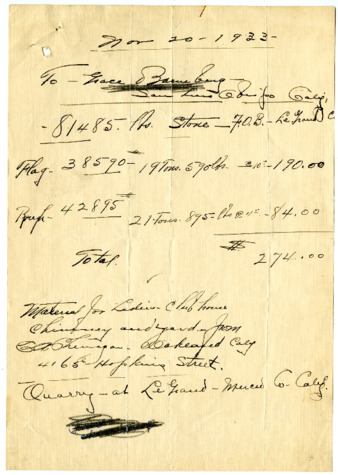 Nov 20-1933-
To - Grace Barneberg
San Luis Obispo Calif,
- 81485. lbs Stone - F.O.B. - Le Grand C
Flag - 38590 - 19 Tons. 590 lbs @ 10 - 190.00
Rough - 42895 21 Tons. 895 - lbs @ 4 - 84.00
Total. $ 274.00
Material for Ladies Club house
Chimney and yard - from
Oakland Caly
4165 - Hopkins Street.
Quarry - at Le Grand - Merced Co - Calif.